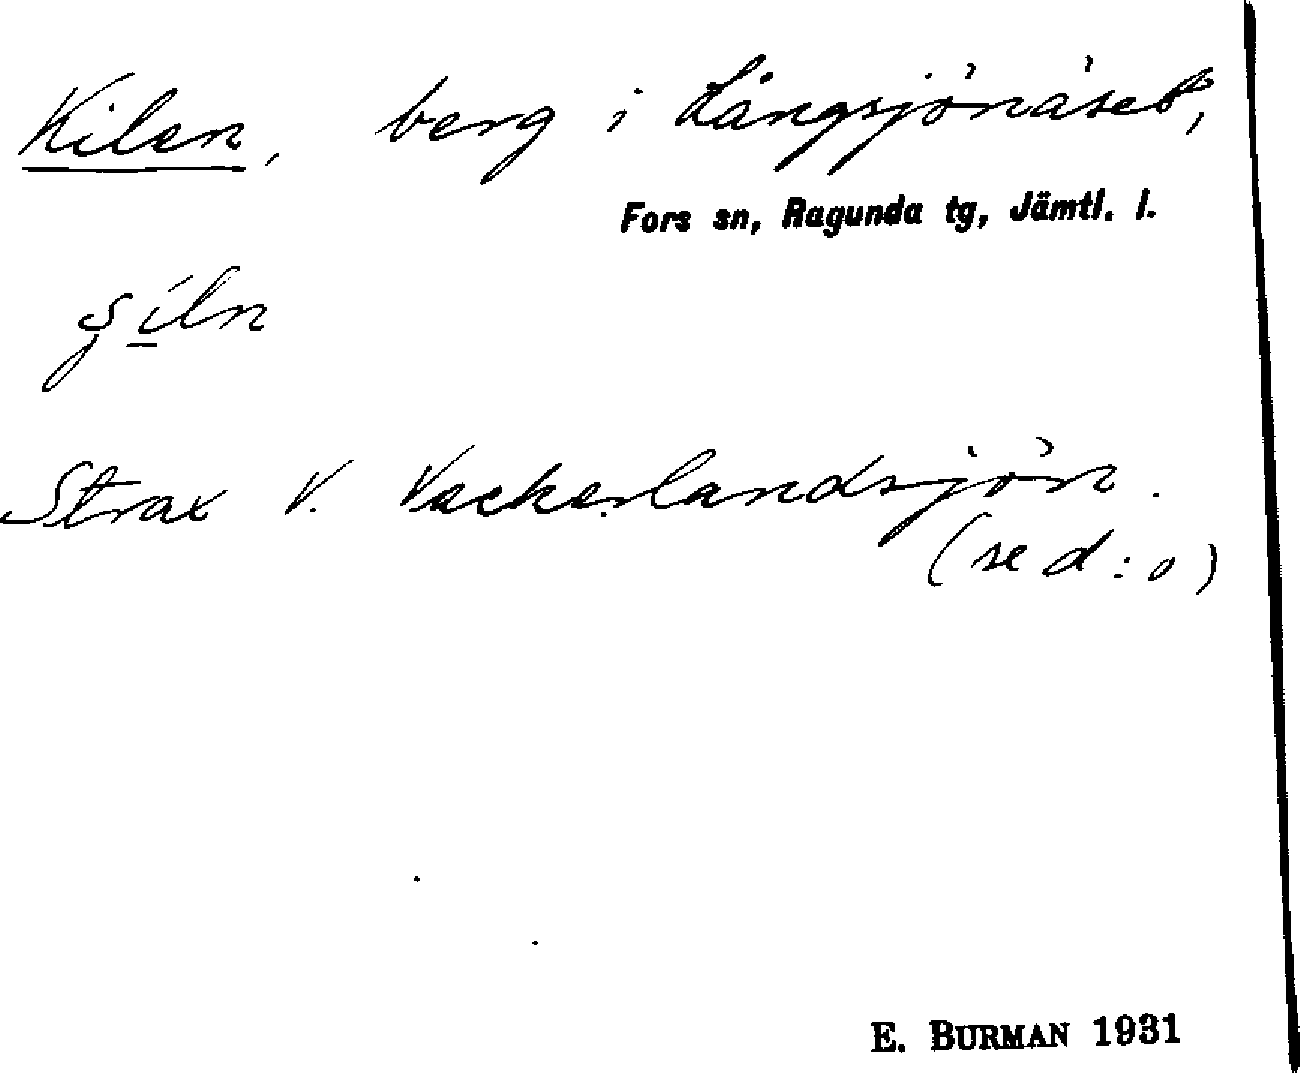 Kilen, berg i Långsjönäset,
Fors sn, Ragunda tg, Jämtl. l.
Strax V. Vackerlandsjön.
(se d:o)
E. BURMAN 1931